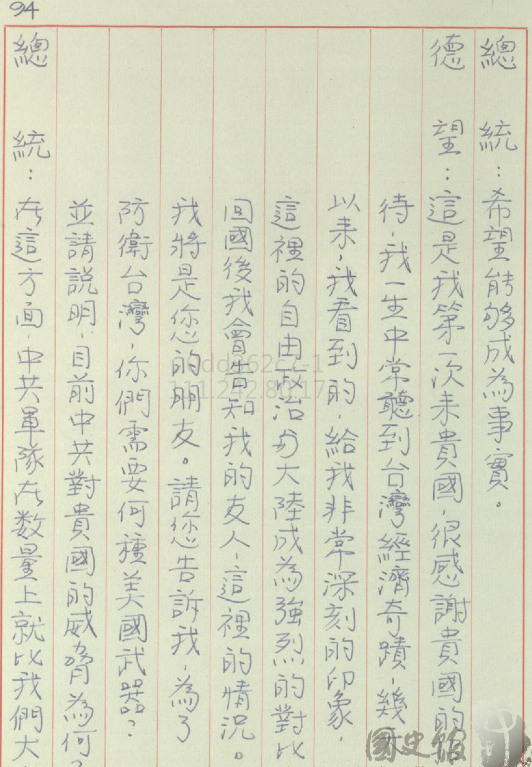 94
總統：希望能够成為事實。
德望：這是我第一次來貴國，很感謝貴國的
待，我一生中常聽到台灣經濟奇蹟，幾
以來，我看到的，給我非常深刻的印象，
這裡的自由政治与大陸成為強烈的對比
回國後我會告知我的友人，這裡的情況。
我將是您的朋友。請您告訴我，為了
防衛台灣，你們需要何種美國武器？
並請說明，目前中共對貴國的威脅為何？
總統：在這方面，中共軍隊在数量上就比我們大
國史館